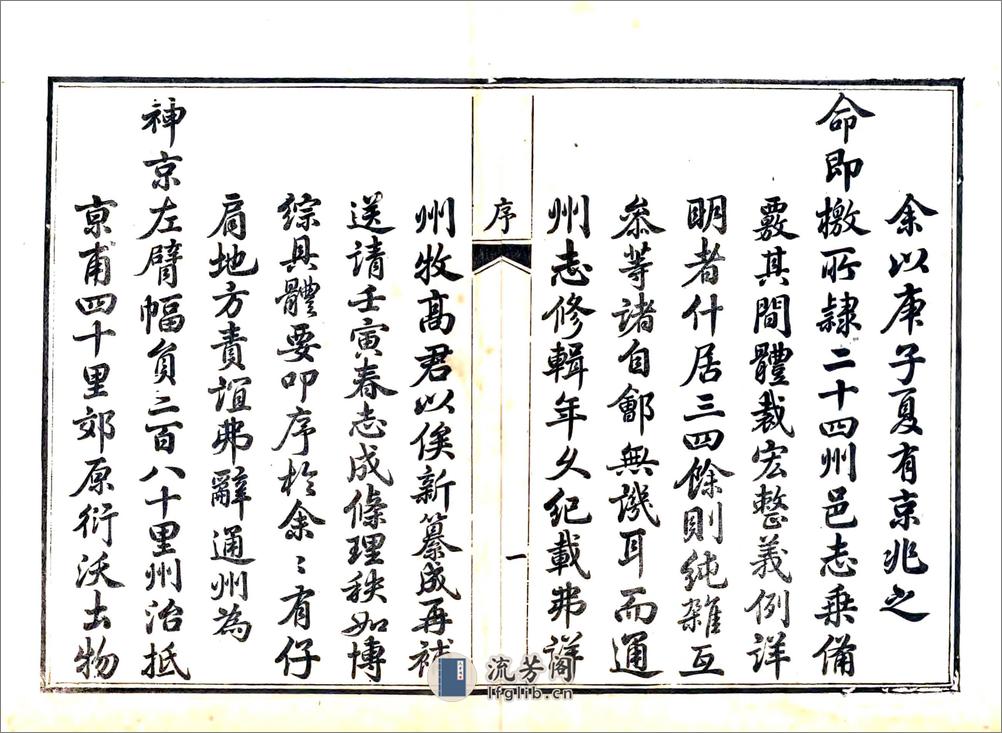 余以庚子夏有京兆之
命即檄所隸二十四州邑志乘備
覈其間體裁宏整義例詳
明者什居三四餘則純雜互
叅等諸自鄶無譏耳而通
州志修輯年久紀載弗詳
序
一
州牧高君以俟新纂成再補
送請壬寅春志成條理秩如博
綜具體要叩序於余〻有仔
肩地方責誼弗辭通州為
神京左臂幅負二百八十里州治抵
京甫四十里郊原衍沃土物
流芳閣
lfglib.cn